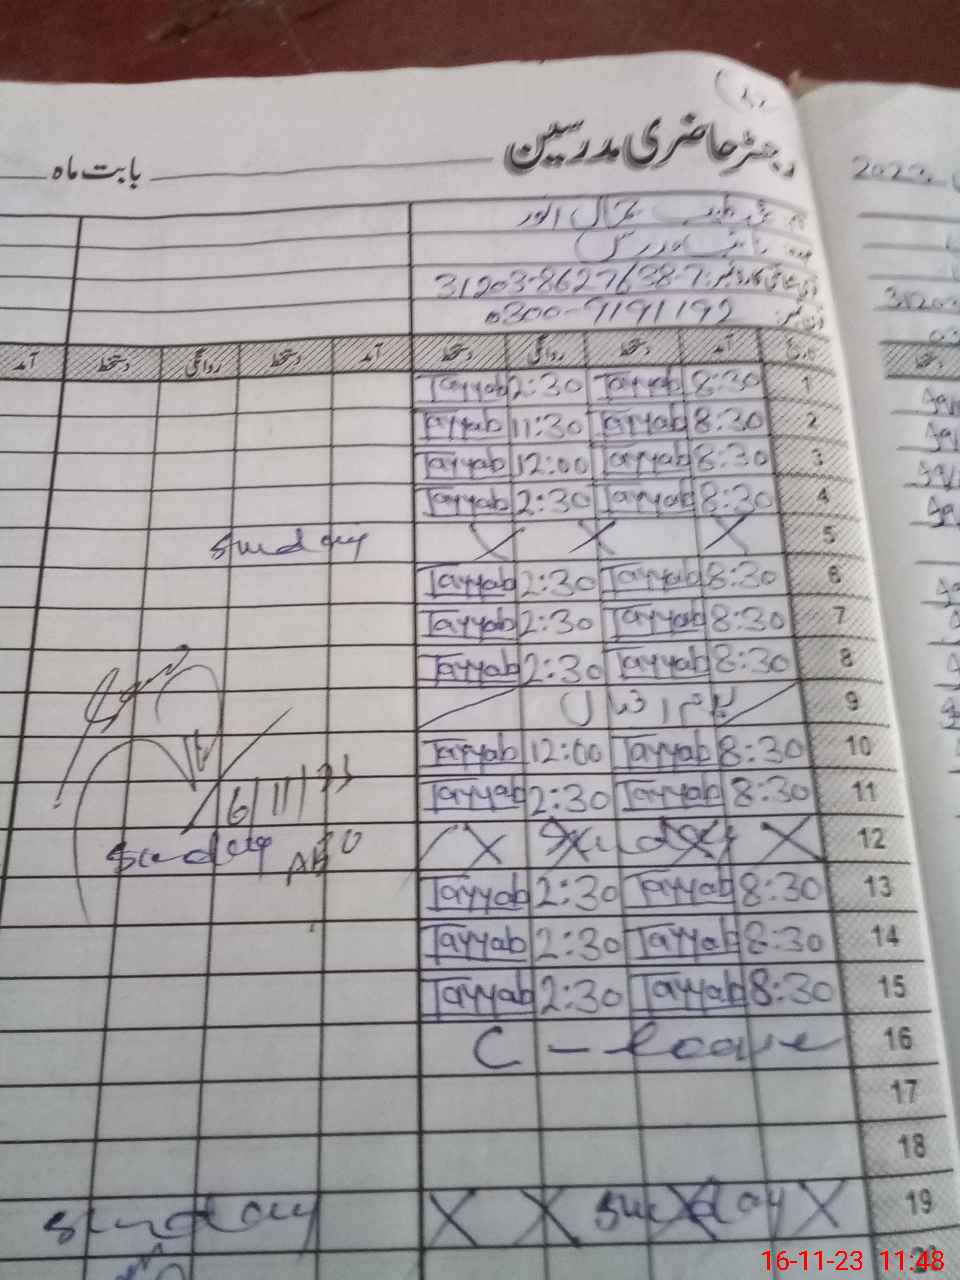 رجسٹر حاضری مدرسین
بابت ماہ
2023
31203-8627638-7
0300-9191192
آمد دستخط روانگی دستخط آمد دستخط روانگی دستخط آمد
1 8:30 Tayyab 2:30 Tayyab
2 8:30 Tayyab 11:30 Tayyab
3 8:30 Tayyab 12:00 Tayyab
4 8:30 Tayyab 2:30 Tayyab
5 X X X Sunday
6 8:30 Tayyab 2:30 Tayyab
7 8:30 Tayyab 2:30 Tayyab
8 8:30 Tayyab 2:30 Tayyab
9 یوم اقبال
10 8:30 Tayyab 12:00 Tayyab
11 8:30 Tayyab 2:30 Tayyab
6/11/23
12 X Sunday X Sunday
13 8:30 Tayyab 2:30 Tayyab
14 8:30 Tayyab 2:30 Tayyab
15 8:30 Tayyab 2:30 Tayyab
16 C - leave
17
18
19 X Sunday X X Sunday
16-11-23 11:48